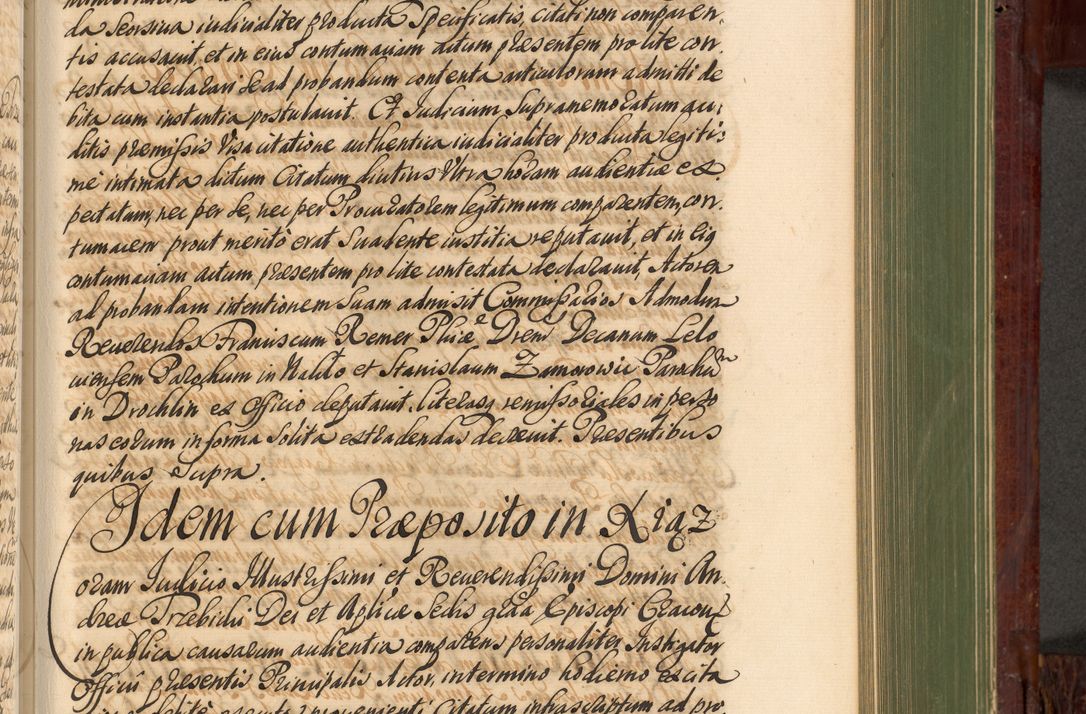 da Seorsiva iudicialiter producta Specificatis, citati non comparen-
tis accusavit, et in eius contumaciam actum præsentem pro lite con-
testata declarari se ad probandum contenta articulorum admitti de
bita cum instantia postulavit. Et Iudicium Supranemoratum au-
ditis præmissis Visa citatione authentica iudicialiter producta legiti-
mè intimata dictum Citatum diutius Ultra horam audientiæ ex
pectatum, nec per se, nec per Procuratorem legitimum comparentem, con-
tumacem prout meritò erat Suadente iustitia reputavit, et in eiq
contumaciam actum præsentem pro lite contestata declaravit, Actorem
ad probandam intentionem suam admisit Commissarios Admodum
Reverendos Franciscum Remer Phiæ Drem Decanum Lelo
viensem Parochum in et Stanislaum Zamorowic Parochum
in Drochlin ex Officio deputavit. literasq remissoriales in perso
nas eorum in forma solita extradendas decrevit. Præsentibus
quibus Supra.
Idem cum Præposito in Xiąz
oram Iudicio Illustrissimi et Reverendissimi Domini An-
dreæ Trzebicki Dei et Aplicæ Sedis graa Episcopi Cracou
in publica causarum audientia comparens personaliter Instigator
Officii præsentis Principalis Actor, in termino hodierno ex cita
executa provenienti Citatum infrascriptum ad pro